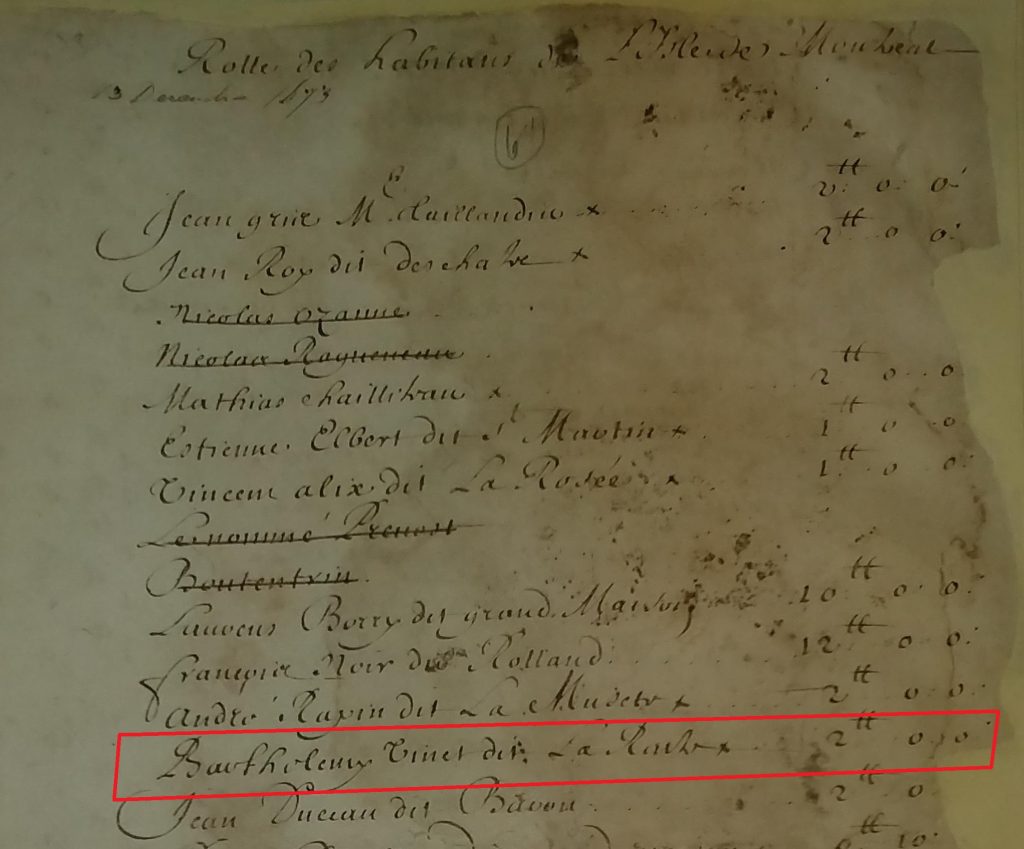 Rolle des habitans de L'Isle de Montreal
3 Decembre 1673
61
Jean grier Mc Taillandier x 2 tt 0 0
Jean Roy dit x 2 tt 0 0
Nicolas Ozanne
Nicolas Ragueneau
Mathias x 2 tt 0 0
Estienne Elbert dit St Martin x 1 tt 0 0
Vincent alix dit La Rosée x 1 tt 0 0
Le nommé Prevost
Boutentrin
Laurens Borry dit grand Maison 10 tt 0 0
françois Noir dit Rolland 12 tt 0 0
André Rapin dit La Musete x 2 tt 0 0
Barthelemy Vinet dit La x 2 tt 0 0
Jean Duceau dit Bavon 2 tt 0
tt 10